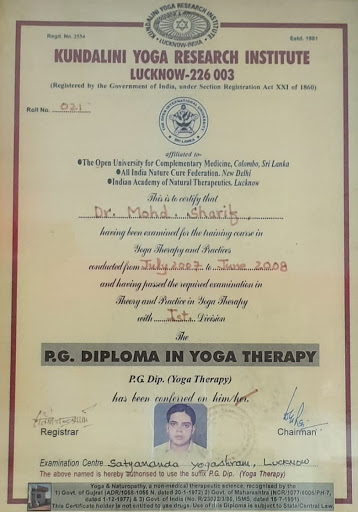 KUNDALINI YOGA RESEARCH INSTITUTE
LUCKNOW-INDIA
Regd. No. 2584
Estd. 1981
KUNDALINI YOGA RESEARCH INSTITUTE
LUCKNOW-226 003
(Registered by the Government of India, under Section Registration Act XXI of 1860)
Roll No. 021
SRI LANKA
affiliated to-
●The Open University for Complementary Medicine, Colombo, Sri Lanka
●All India Nature Cure Federation. New Delhi
●Indian Academy of Natural Therapeutics. Lucknow
This is to certify that
Dr. Mohd. Sharif,
having been examined for the training course in
Yoga Therapy and Practices
conducted from July 2007 to June 2008
and having passed the required examination in
Theory and Practice in Yoga Therapy
with Ist Division
The
P.G. DIPLOMA IN YOGA THERAPY
P.G. Dip. (Yoga Therapy)
has been conferred on him/her.
Registrar
Chairman
Examination Centre Satyananda Yogashram, Lucknow
The above named is hereby authorised to use the suffix P.G. Dip. (Yoga Therapy)
Yoga & Naturopathy, a non-medical therapeutic science, recognised by the
1) Govt. of Gujrat
2) Govt. of Maharashtra
3) Govt of India
This Certificate holder is not entitled to use drugs. Use of this Diploma is subject to State/Central Law.